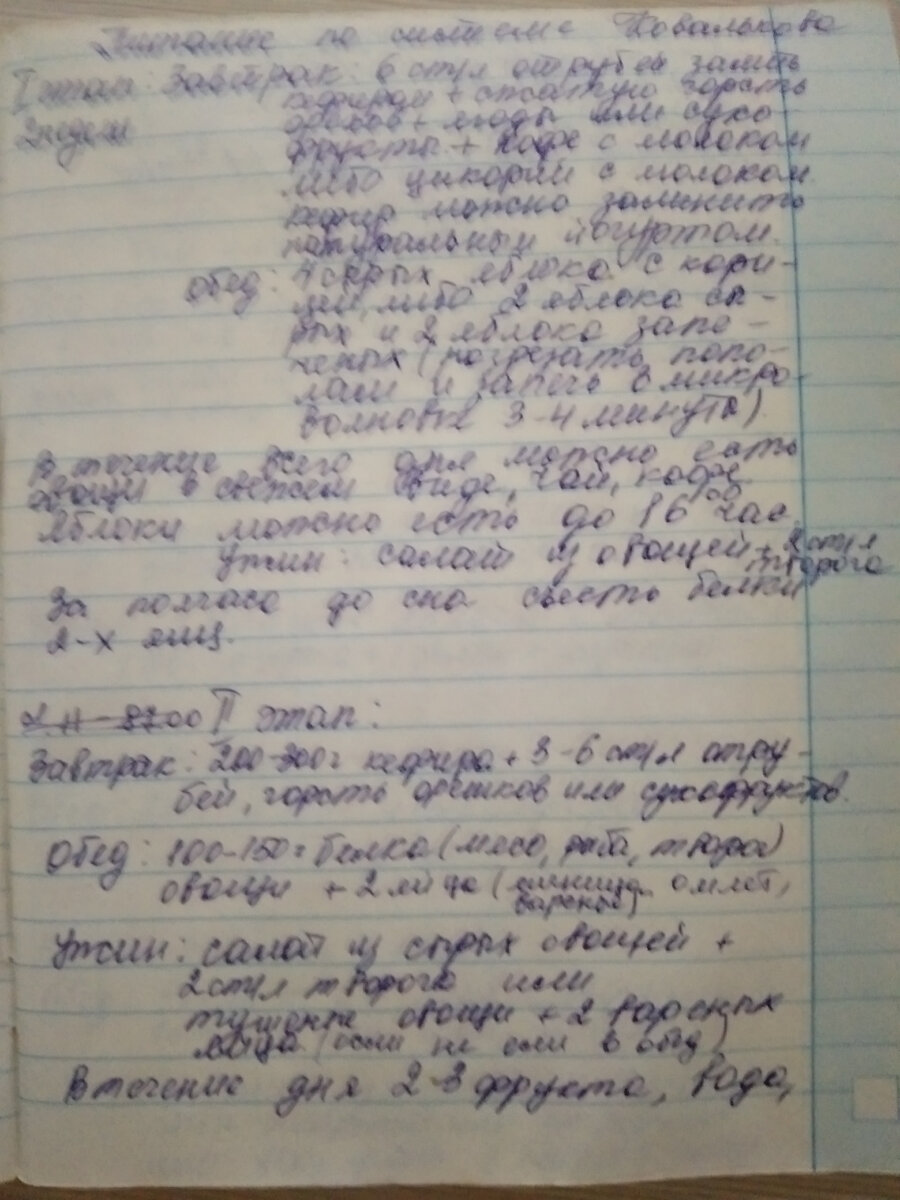 Питание по системе Ковалькова
I этап: Завтрак: 6 ст/л отрубей залить
2 недели кефиром + сжатую горсть
орехов + ягоды или сухо-
фрукты + кофе с молоком
либо цикорий с молоком
кефир можно заменить
натуральным йогуртом.
Обед: 4 сырых яблока с кори-
цей, либо 2 яблока сы-
рых и 2 яблока запе-
ченых (разрезать попо-
лам и запечь в микро-
волновке 3-4 минуты).
В течение всего дня можно есть
овощи в свежем виде, чай, кофе
Яблоки можно есть до 16 00 час.
Ужин: салат из овощей + 2 ст/л
творога
За полчаса до сна съесть белки
2-х яиц.
II этап:
Завтрак: 200-300 г кефира + 3-6 ст/л отру-
бей, горсть орешков или сухофруктов.
Обед: 100-150 г белка (мясо, рыба, творог)
овощи + 2 яйца (яичница, омлет,
вареные)
Ужин: салат из сырых овощей +
2 ст/л творога или
тушеные овощи + 2 вареных
яйца (если не ели в обед)
В течение дня 2-3 фрукта, вода,